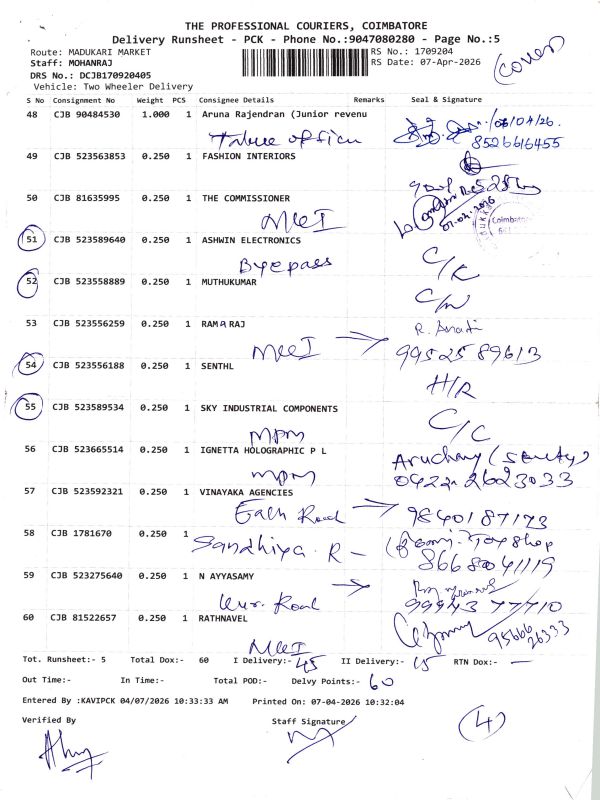 THE PROFESSIONAL COURIERS, COIMBATORE
Delivery Runsheet - PCK - Phone No.:9047080280 - Page No.:5
Route: MADUKARI MARKET RS No.: 1709204
Staff: MOHANRAJ RS Date: 07-Apr-2026
DRS No.: DCJB170920405
Vehicle: Two Wheeler Delivery
(cover)
S No Consignment No Weight PCS Consignee Details Remarks Seal & Signature
48 CJB 90484530 1.000 1 Aruna Rajendran (Junior revenu
8526616455
49 CJB 523563853 0.250 1 FASHION INTERIORS
50 CJB 81635995 0.250 1 THE COMMISSIONER
Coimbatore
51 CJB 523589640 0.250 1 ASHWIN ELECTRONICS
Byepass
52 CJB 523558889 0.250 1 MUTHUKUMAR
53 CJB 523556259 0.250 1 RAMARAJ
9952589613
54 CJB 523556188 0.250 1 SENTHL
H/R
55 CJB 523589534 0.250 1 SKY INDUSTRIAL COMPONENTS
C/C
mpm
56 CJB 523665514 0.250 1 IGNETTA HOLOGRAPHIC P L
mpm 0422 2623033
57 CJB 523592321 0.250 1 VINAYAKA AGENCIES
Road 9840187173
58 CJB 1781670 0.250 1
Sandhiya. R -
8668041119
59 CJB 523275640 0.250 1 N AYYASAMY
Road 9994377710
60 CJB 81522657 0.250 1 RATHNAVEL
9566626333
Tot. Runsheet:- 5 Total Dox:- 60 I Delivery:- 45 II Delivery:- 15 RTN Dox:- —
Out Time:- In Time:- Total POD:- Delvy Points:- 60
Entered By :KAVIPCK 04/07/2026 10:33:33 AM Printed On: 07-04-2026 10:32:04
Verified By Staff Signature
(4)